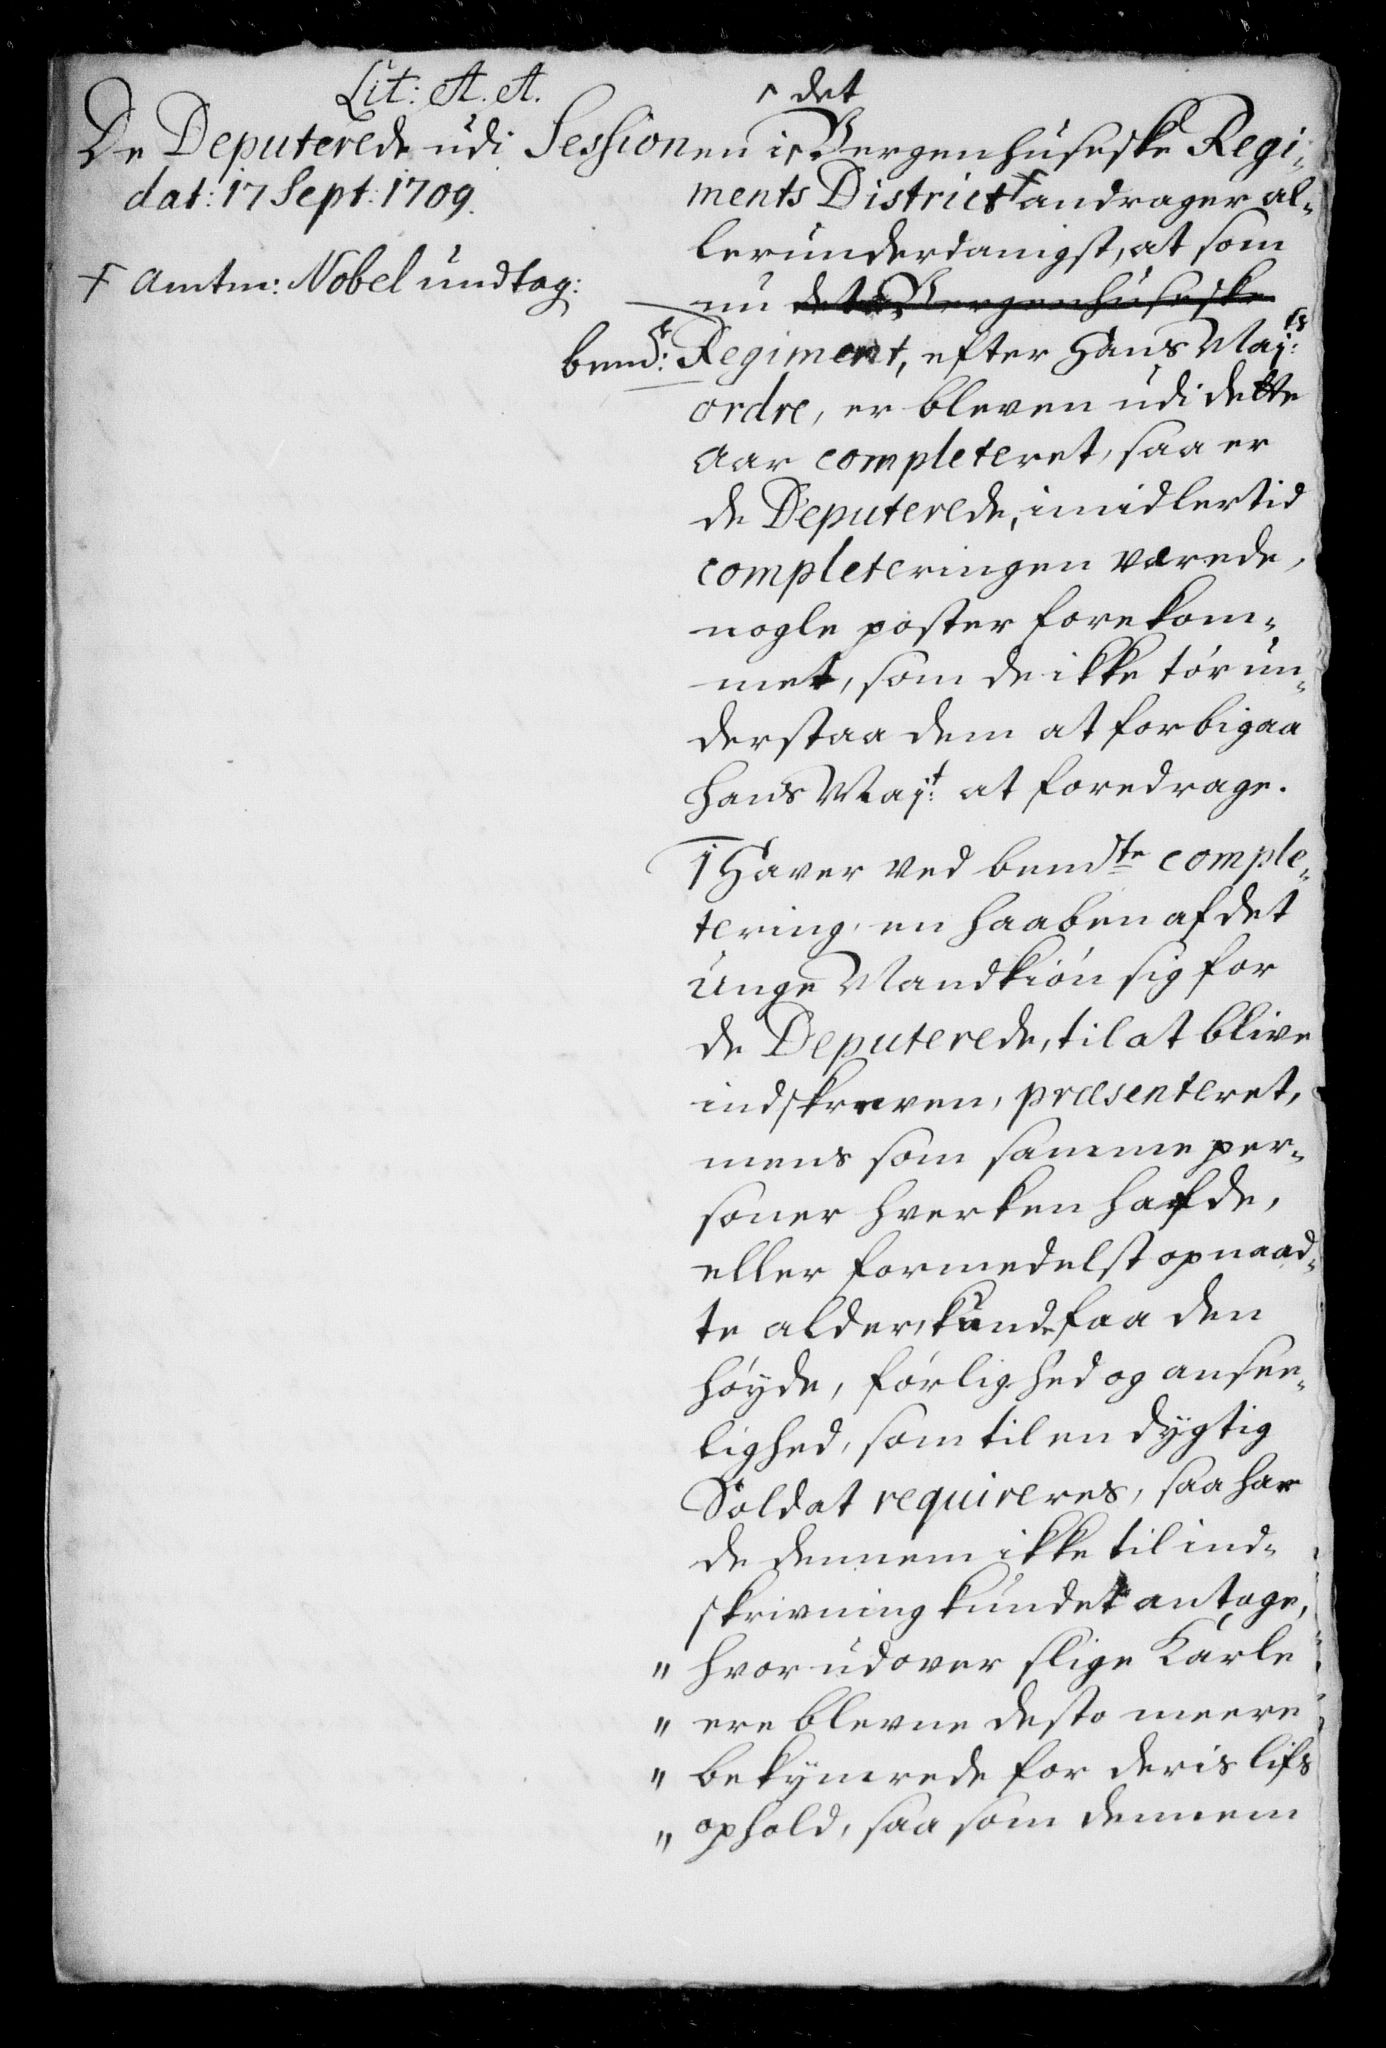 Lit: A. A.
det
De Deputerede udi Sessionen i Bergenhuseske Regi-
dat: 17 Sept: 1709.
ments District + andrager al-
lerunderdanigst, at som
+ Amtm: Nobel undtag:
nu det Bergenhuseske
bemdte: Regiment, efter Hans Mayts:
ordre, er bleven udi dette
Aar completeret, saa er
de Deputerede, imidlertid
completeringen varede,
nogle poster forekom-
met, som de ikke tør un-
derstaa dem at forbigaa
Hans Mayt: at foredrage.
1 Haver ved bemdte comple-
tering, en haaben af det
unge Mandkiøn sig for
de Deputerede, til at blive
indskreven, præsenteret,
mens som samme per-
soner hverken hafde,
eller formedelst opnaad-
te alder, kunde faa den
høyde, førlighed og ansee-
lighed, som til en dygtig
Soldat requireres, saa har
de dennem ikke til ind-
skrivning kundet antage,
" hvorudover slige Karle
" ere blevne desto meere
" bekymrede for deris lifs
" ophold, saasom dennem